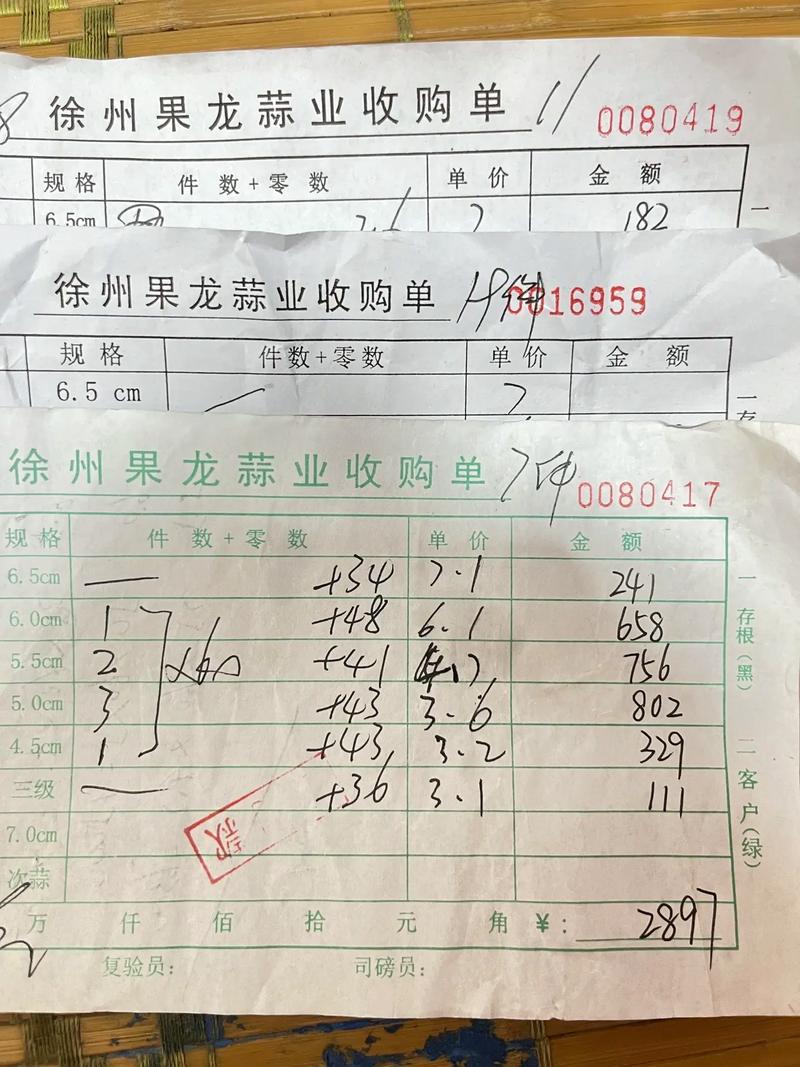 徐州果龙蒜业收购单 11 0080419
规格 件数+零数 单价 金额
6.5cm 26 7 182
徐州果龙蒜业收购单 件 0016959
规格 件数+零数 单价 金额
6.5 cm 一 7
徐州果龙蒜业收购单 7件 0080417
规格 件数+零数 单价 金额
6.5cm — +34 7.1 241
6.0cm 1 +48 6.1 658
5.5cm 2 ×60 +41 4.7 756
5.0cm 3 +43 3.6 802
4.5cm 1 +43 3.2 329
三级 — +36 3.1 111
7.0cm
次蒜
万 仟 佰 拾 元 角 ¥: 2897
复验员: 司磅员:
一存根(黑) 二客户(绿)